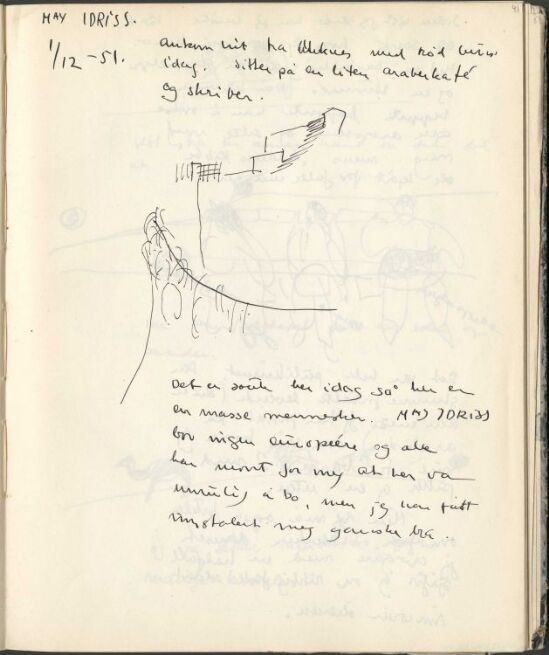 MAY IDRISS.
1/12 - 51.
ankom hit fra Meknes med röd
idag. Sitter på en liten araberkafé
og skriver.
41
Det er souk her idag så her er
en masse mennesker. MAY IDRISS
bor ingen européere og alle
har ment for meg at her var
umulig å bo, men jeg har fått
innstalert meg ganske bra.